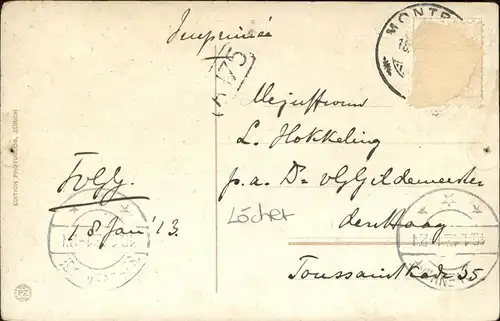 Imprimée
MONTR
Mejuffrouw
L. Hokkeling
p.a. Dr vGGildemeester
Löcher
den Haag
Toussaintkade 35.
18 Jan '13.
EDITION PHOTOGLOB, ZÜRICH
PZ